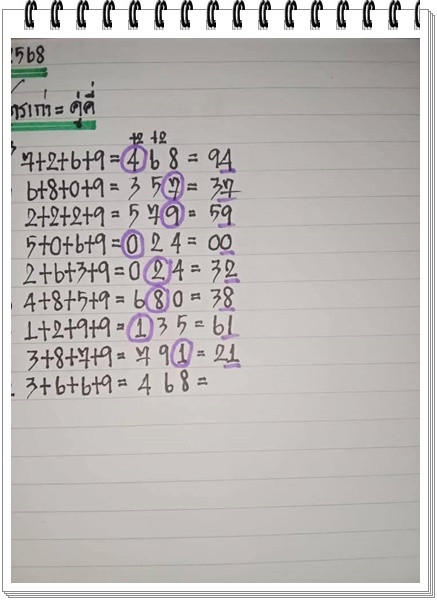 2568
= คู่คี่
+2 +2
7+2+6+9 = 4 6 8 = 94
6+8+0+9 = 3 5 7 = 37
2+2+2+9 = 5 7 9 = 59
5+0+6+9 = 0 2 4 = 00
2+6+3+9 = 0 2 4 = 32
4+8+5+9 = 6 8 0 = 38
1+2+9+9 = 1 3 5 = 61
3+8+7+9 = 7 9 1 = 21
3+6+6+9 = 4 6 8 =